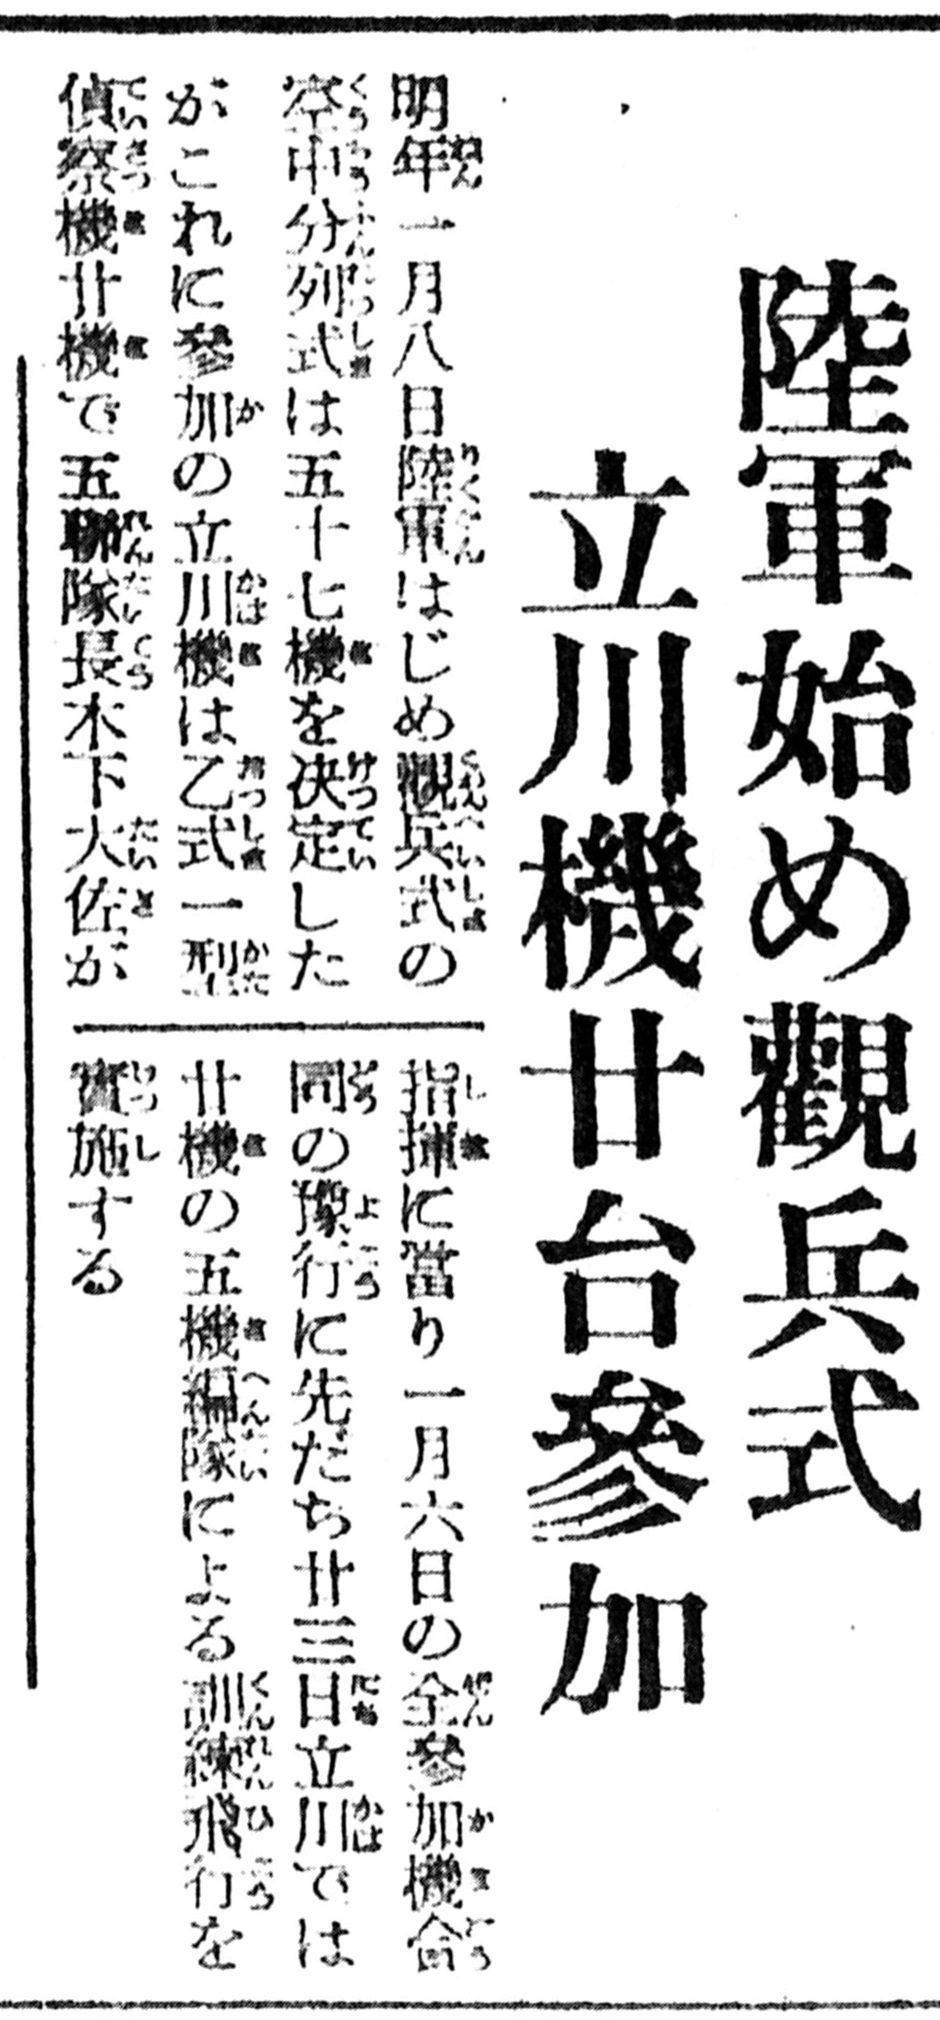 陸軍始め觀兵式
立川機廿台參加
明年一月八日陸軍はじめ觀兵式の
空中分列式は五十七機を決定した
がこれに參加の立川機は乙式一型
偵察機廿機で五聯隊長木下大佐が
指揮に當り一月六日の全參加機合
同の豫行に先だち廿三日立川では
廿機の五機編隊による訓練飛行を
實施する